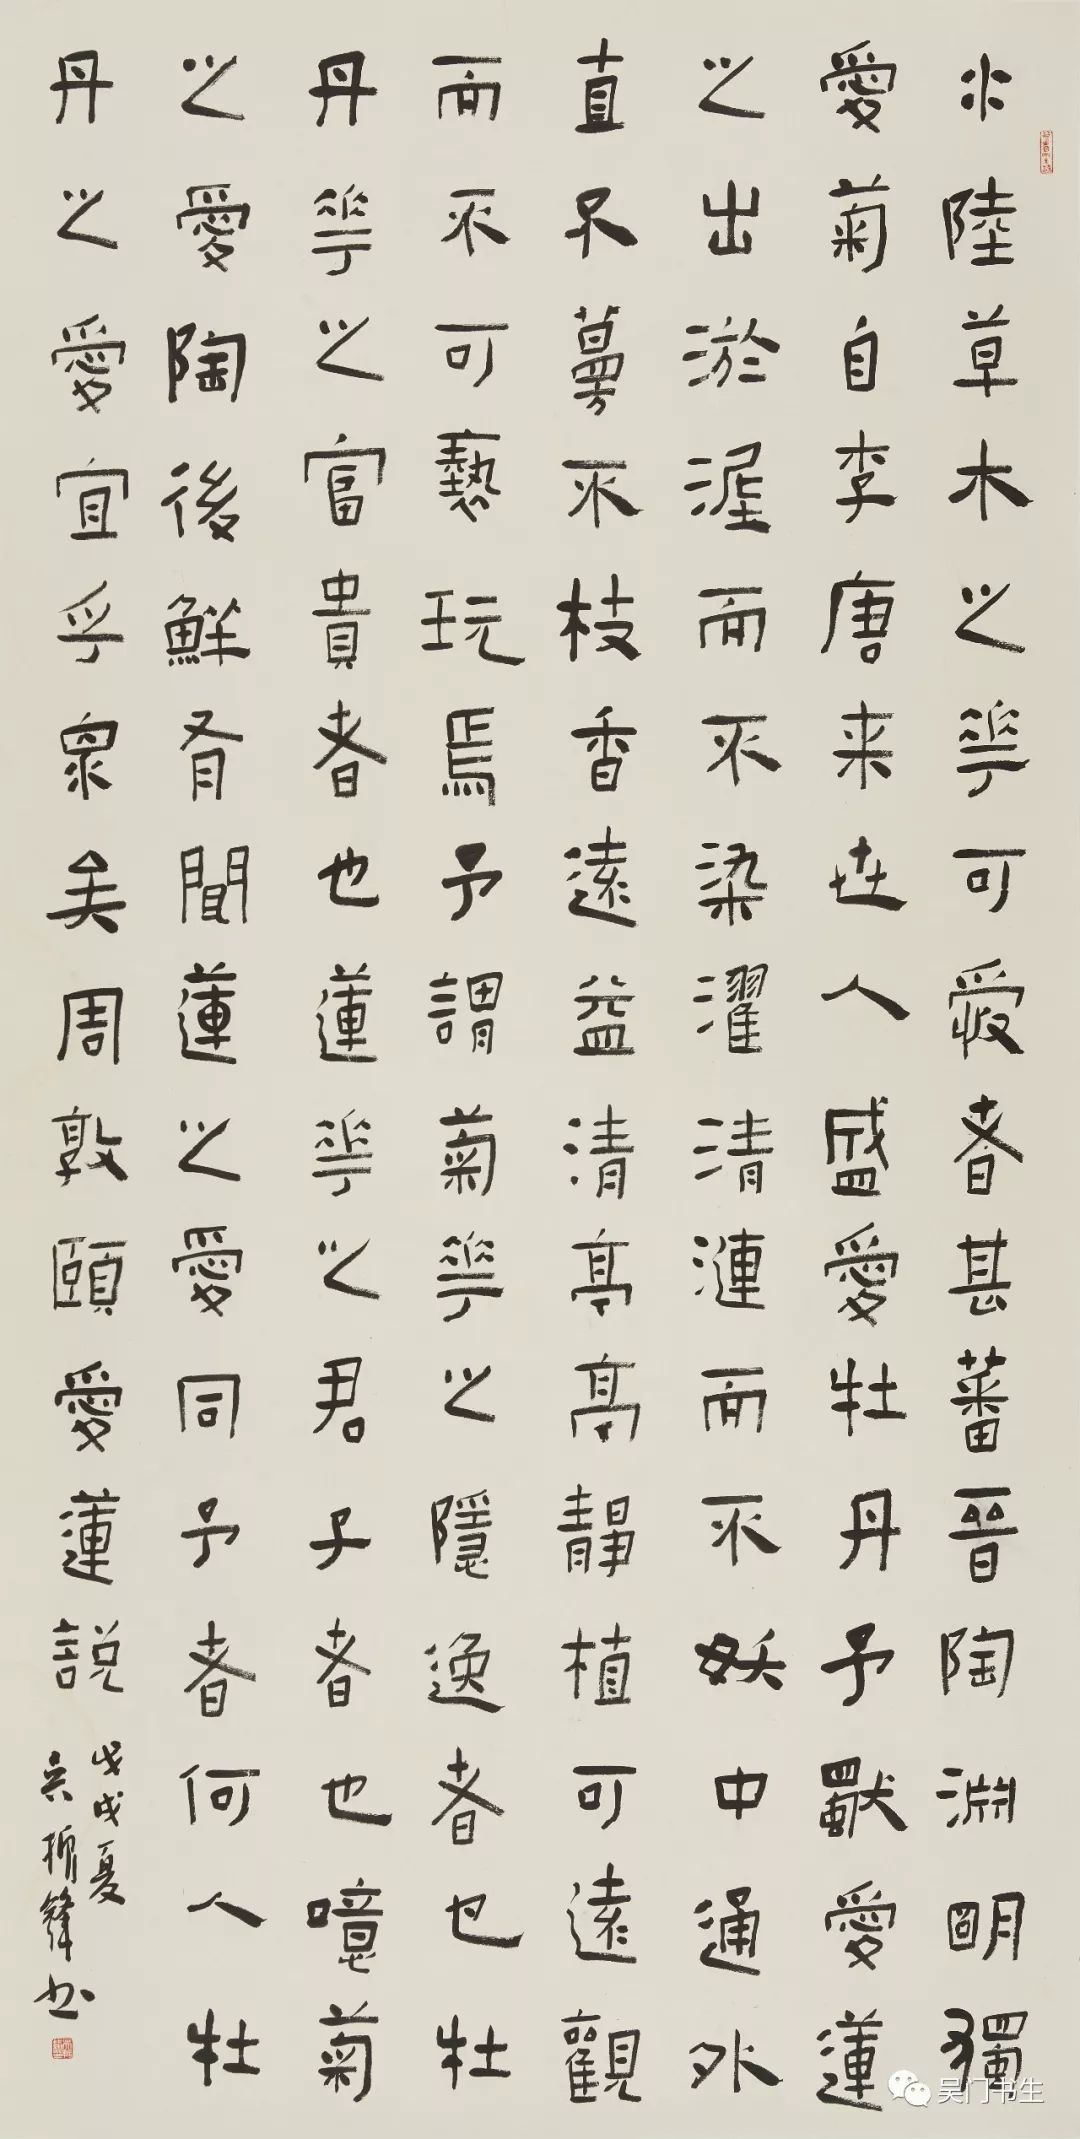 水陸草木之華可愛者甚蕃晉陶淵明獨
愛菊自李唐来世人盛愛牡丹予獨愛蓮
之出淤泥而不染濯清漣而不妖中通外
直不蔓不枝香遠益清亭亭靜植可遠觀
而不可褻玩焉予謂菊華之隱逸者也牡
丹華之富貴者也蓮華之君子者也噫菊
之愛陶後鮮有聞蓮之愛同予者何人牡
丹之愛宜乎眾矣周敦頤愛蓮説
戊戌夏
吴振鋒书
吴门书生